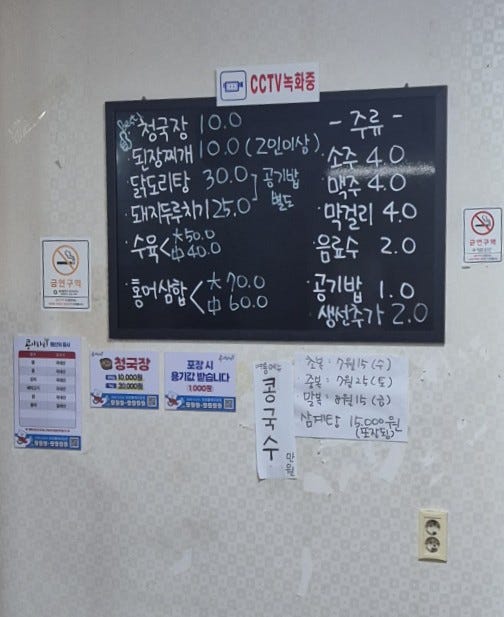 CCTV녹화중
Best
청국장 10.0
된장찌개 10.0 (2인이상)
닭도리탕 30.0
돼지두루치기 25.0
공기밥
별도
수육 < 大 50.0
中 40.0
홍어삼합 < 大 70.0
中 60.0
- 주류 -
소주 4.0
맥주 4.0
막걸리 4.0
음료수 2.0
공기밥 1.0
생선추가 2.0
금연구역
금연구역
청국장
10,000원
20,000원
포장 시
용기값 받습니다
1,000원
여름메뉴
콩국수
만원
초복 : 7월 15 (수)
중복 : 7월 25 (토)
말복 : 8월 15 (금)
삼계탕 15,000원
(포장됨)